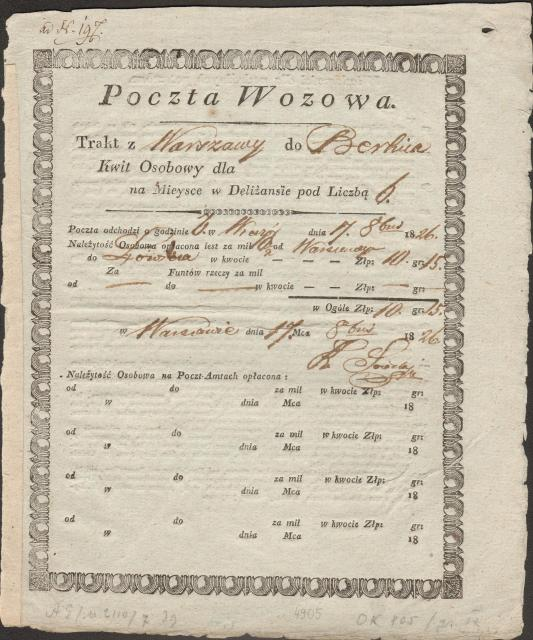 ad N. 197.
Poczta Wozowa.
Trakt z Warszawy do Berlina
Kwit Osobowy dla
na Mieysce w Deliżansie pod Liczbą 6.
Poczta odchodzi o godzinie 6. w dnia 17. 8bris 1826.
Należytość Osobowa opłacona iest za mil od Warszawy
do Łowicza w kwocie — — — Złp: 10. gr: 15.
Za Funtów rzeczy za mil
od — do — w kwocie — — Złp: — gr: —
w Ogóle Złp: 10. gr: 15.
w Warszawie dnia 17 Mca 8bris 1826.
Należytość Osobowa na Poczt-Amtach opłacona :
od do za mil w kwocie Złp: gr:
w dnia Mca 18
od do za mil w kwocie Złp: gr:
w dnia Mca 18
od do za mil w kwocie Złp: gr:
w dnia Mca 18
od do za mil w kwocie Złp: gr:
w dnia Mca 18
4905